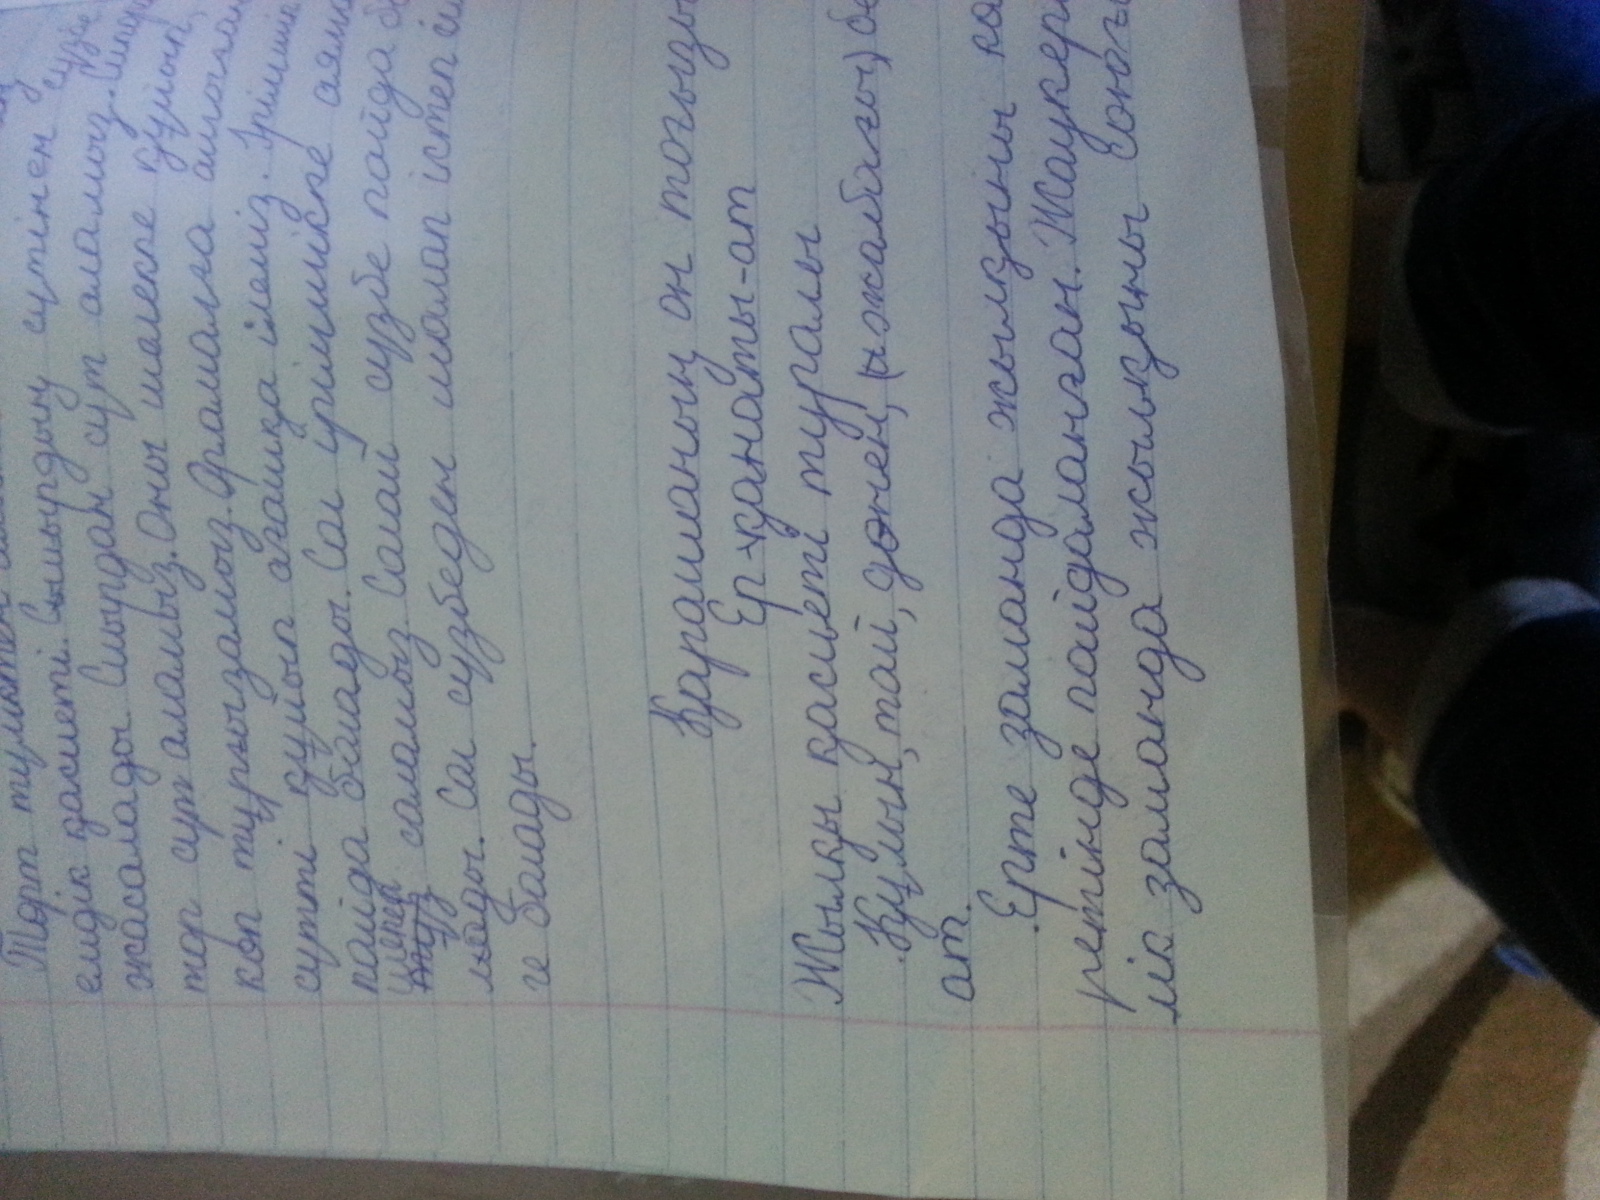 Төрт түліктен
елдік қасиеті. Сыиырдың сүтінен сүзбе
жасалады. Сиырдан сүт аламыз. Сиыр
тор сүт аламыз. Оны шелекке құйып,
көп тұрғызамыз. Орамалға
сүтті құйып ағашқа ілеміз. Ірімшік
пайда болады. Сол ірімшікке
шөпек саламыз Солай сүзбе пайда бо
лады. Сол сүзбеден малап істеп
ге болады.
Қарашаның он тоғызы
Ер-қанаты-ат
Жылқы қасиеті туралы
Құлын, тай, дөнен,
ат.
Ерте заманда жылқыны
ретінде пайдаланған. Жаукер
лік заманда жылқыны соғ